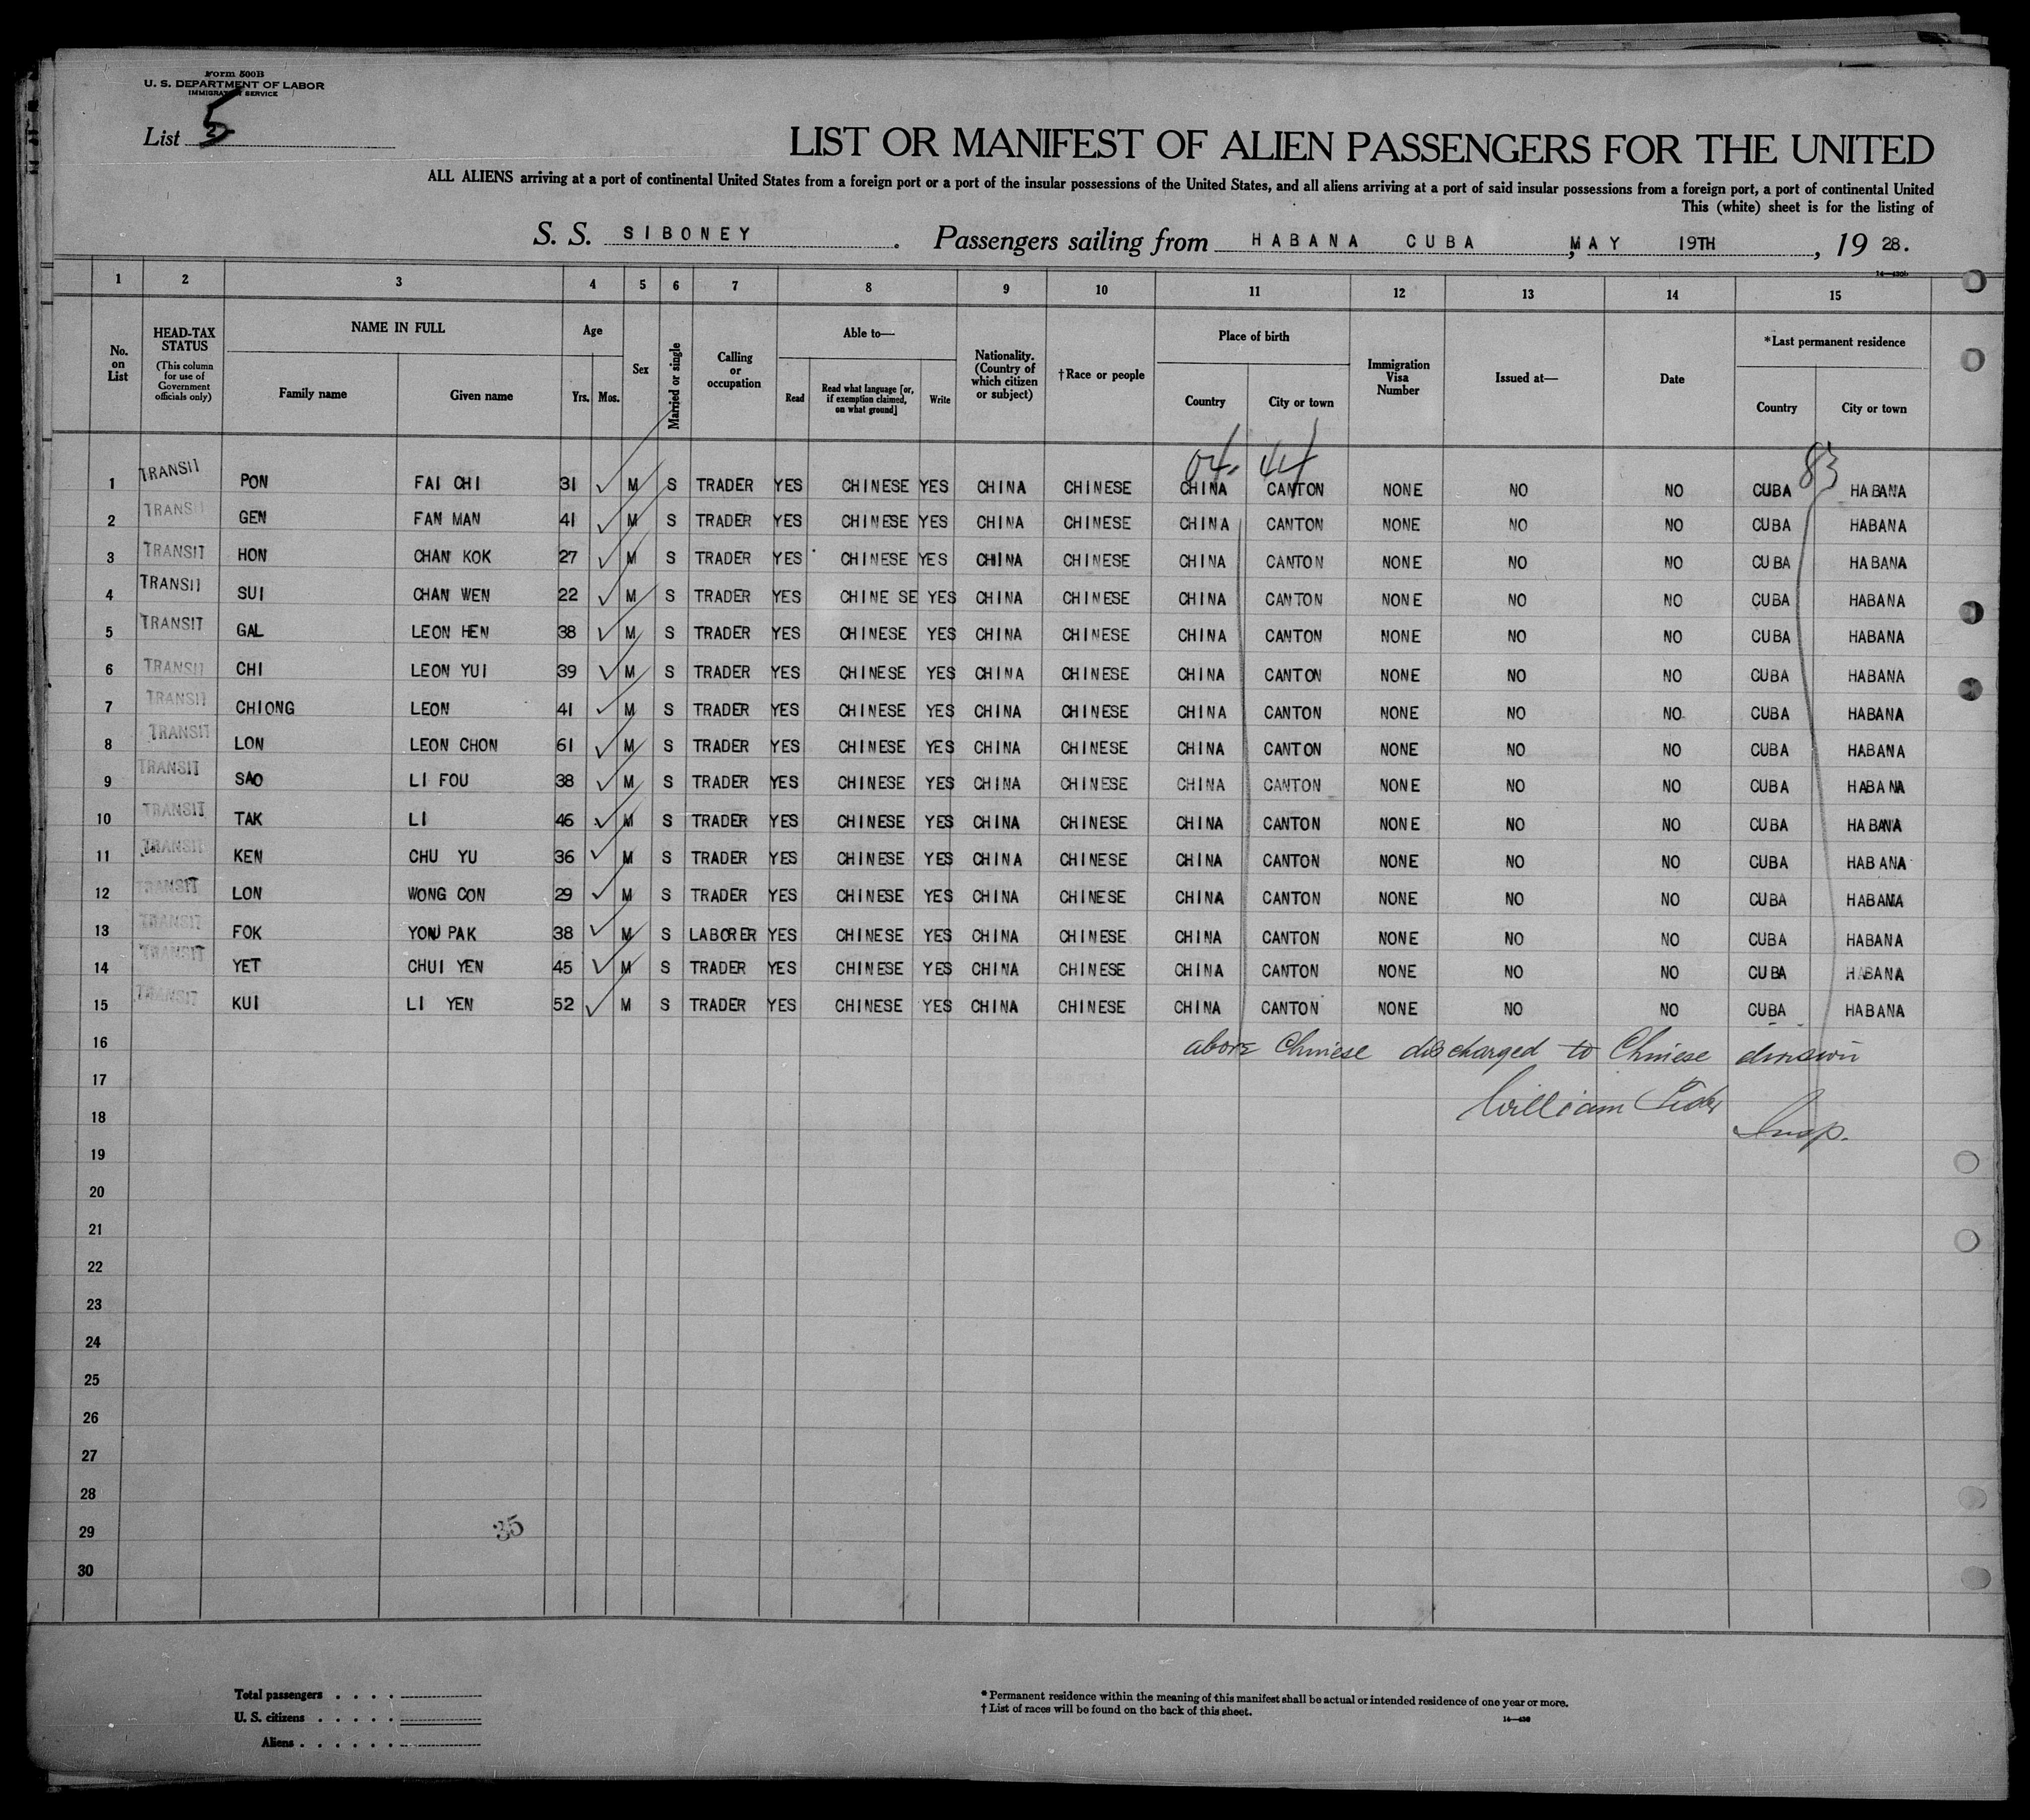 Form 500B
U. S. DEPARTMENT OF LABOR
IMMIGRATION SERVICE
List 5
LIST OR MANIFEST OF ALIEN PASSENGERS FOR THE UNITED
ALL ALIENS arriving at a port of continental United States from a foreign port or a port of the insular possessions of the United States, and all aliens arriving at a port of said insular possessions from a foreign port, a port of continental United
This (white) sheet is for the listing of
S. S. SIBONEY . Passengers sailing from HABANA CUBA , MAY 19TH , 19 28.
1 2 3 4 5 6 7 8 9 10 11 12 13 14 15
No. on List
HEAD-TAX STATUS (This column for use of Government officials only)
NAME IN FULL Family name Given name
Age Yrs. Mos.
Sex
Married or single
Calling or occupation
Able to— Read Read what language [or, if exemption claimed, on what ground] Write
Nationality. (Country of which citizen or subject)
†Race or people
Place of birth Country City or town
Immigration Visa Number
Issued at—
Date
*Last permanent residence Country City or town
04 44 83
1 TRANSIT PON FAI CHI 31 M S TRADER YES CHINESE YES CHINA CHINESE CHINA CANTON NONE NO NO CUBA HABANA
2 TRANSIT GEN FAN MAN 41 M S TRADER YES CHINESE YES CHINA CHINESE CHINA CANTON NONE NO NO CUBA HABANA
3 TRANSIT HON CHAN KOK 27 M S TRADER YES CHINESE YES CHINA CHINESE CHINA CANTON NONE NO NO CUBA HABANA
4 TRANSIT SUI CHAN WEN 22 M S TRADER YES CHINESE YES CHINA CHINESE CHINA CANTON NONE NO NO CUBA HABANA
5 TRANSIT GAL LEON HEN 38 M S TRADER YES CHINESE YES CHINA CHINESE CHINA CANTON NONE NO NO CUBA HABANA
6 TRANSIT CHI LEON YUI 39 M S TRADER YES CHINESE YES CHINA CHINESE CHINA CANTON NONE NO NO CUBA HABANA
7 TRANSIT CHIONG LEON 41 M S TRADER YES CHINESE YES CHINA CHINESE CHINA CANTON NONE NO NO CUBA HABANA
8 TRANSIT LON LEON CHON 61 M S TRADER YES CHINESE YES CHINA CHINESE CHINA CANTON NONE NO NO CUBA HABANA
9 TRANSIT SAO LI FOU 38 M S TRADER YES CHINESE YES CHINA CHINESE CHINA CANTON NONE NO NO CUBA HABANA
10 TRANSIT TAK LI 46 M S TRADER YES CHINESE YES CHINA CHINESE CHINA CANTON NONE NO NO CUBA HABANA
11 TRANSIT KEN CHU YU 36 M S TRADER YES CHINESE YES CHINA CHINESE CHINA CANTON NONE NO NO CUBA HABANA
12 TRANSIT LON WONG CON 29 M S TRADER YES CHINESE YES CHINA CHINESE CHINA CANTON NONE NO NO CUBA HABANA
13 TRANSIT FOK YON PAK 38 M S LABORER YES CHINESE YES CHINA CHINESE CHINA CANTON NONE NO NO CUBA HABANA
14 TRANSIT YET CHUI YEN 45 M S TRADER YES CHINESE YES CHINA CHINESE CHINA CANTON NONE NO NO CUBA HABANA
15 TRANSIT KUI LI YEN 52 M S TRADER YES CHINESE YES CHINA CHINESE CHINA CANTON NONE NO NO CUBA HABANA
16 above Chinese discharged to Chinese division
17 William
18 Insp.
19
20
21
22
23
24
25
26
27
28
29
35
30
Total passengers . . . .
U. S. citizens . . . . .
Aliens . . . . . .
* Permanent residence within the meaning of this manifest shall be actual or intended residence of one year or more.
† List of races will be found on the back of this sheet.